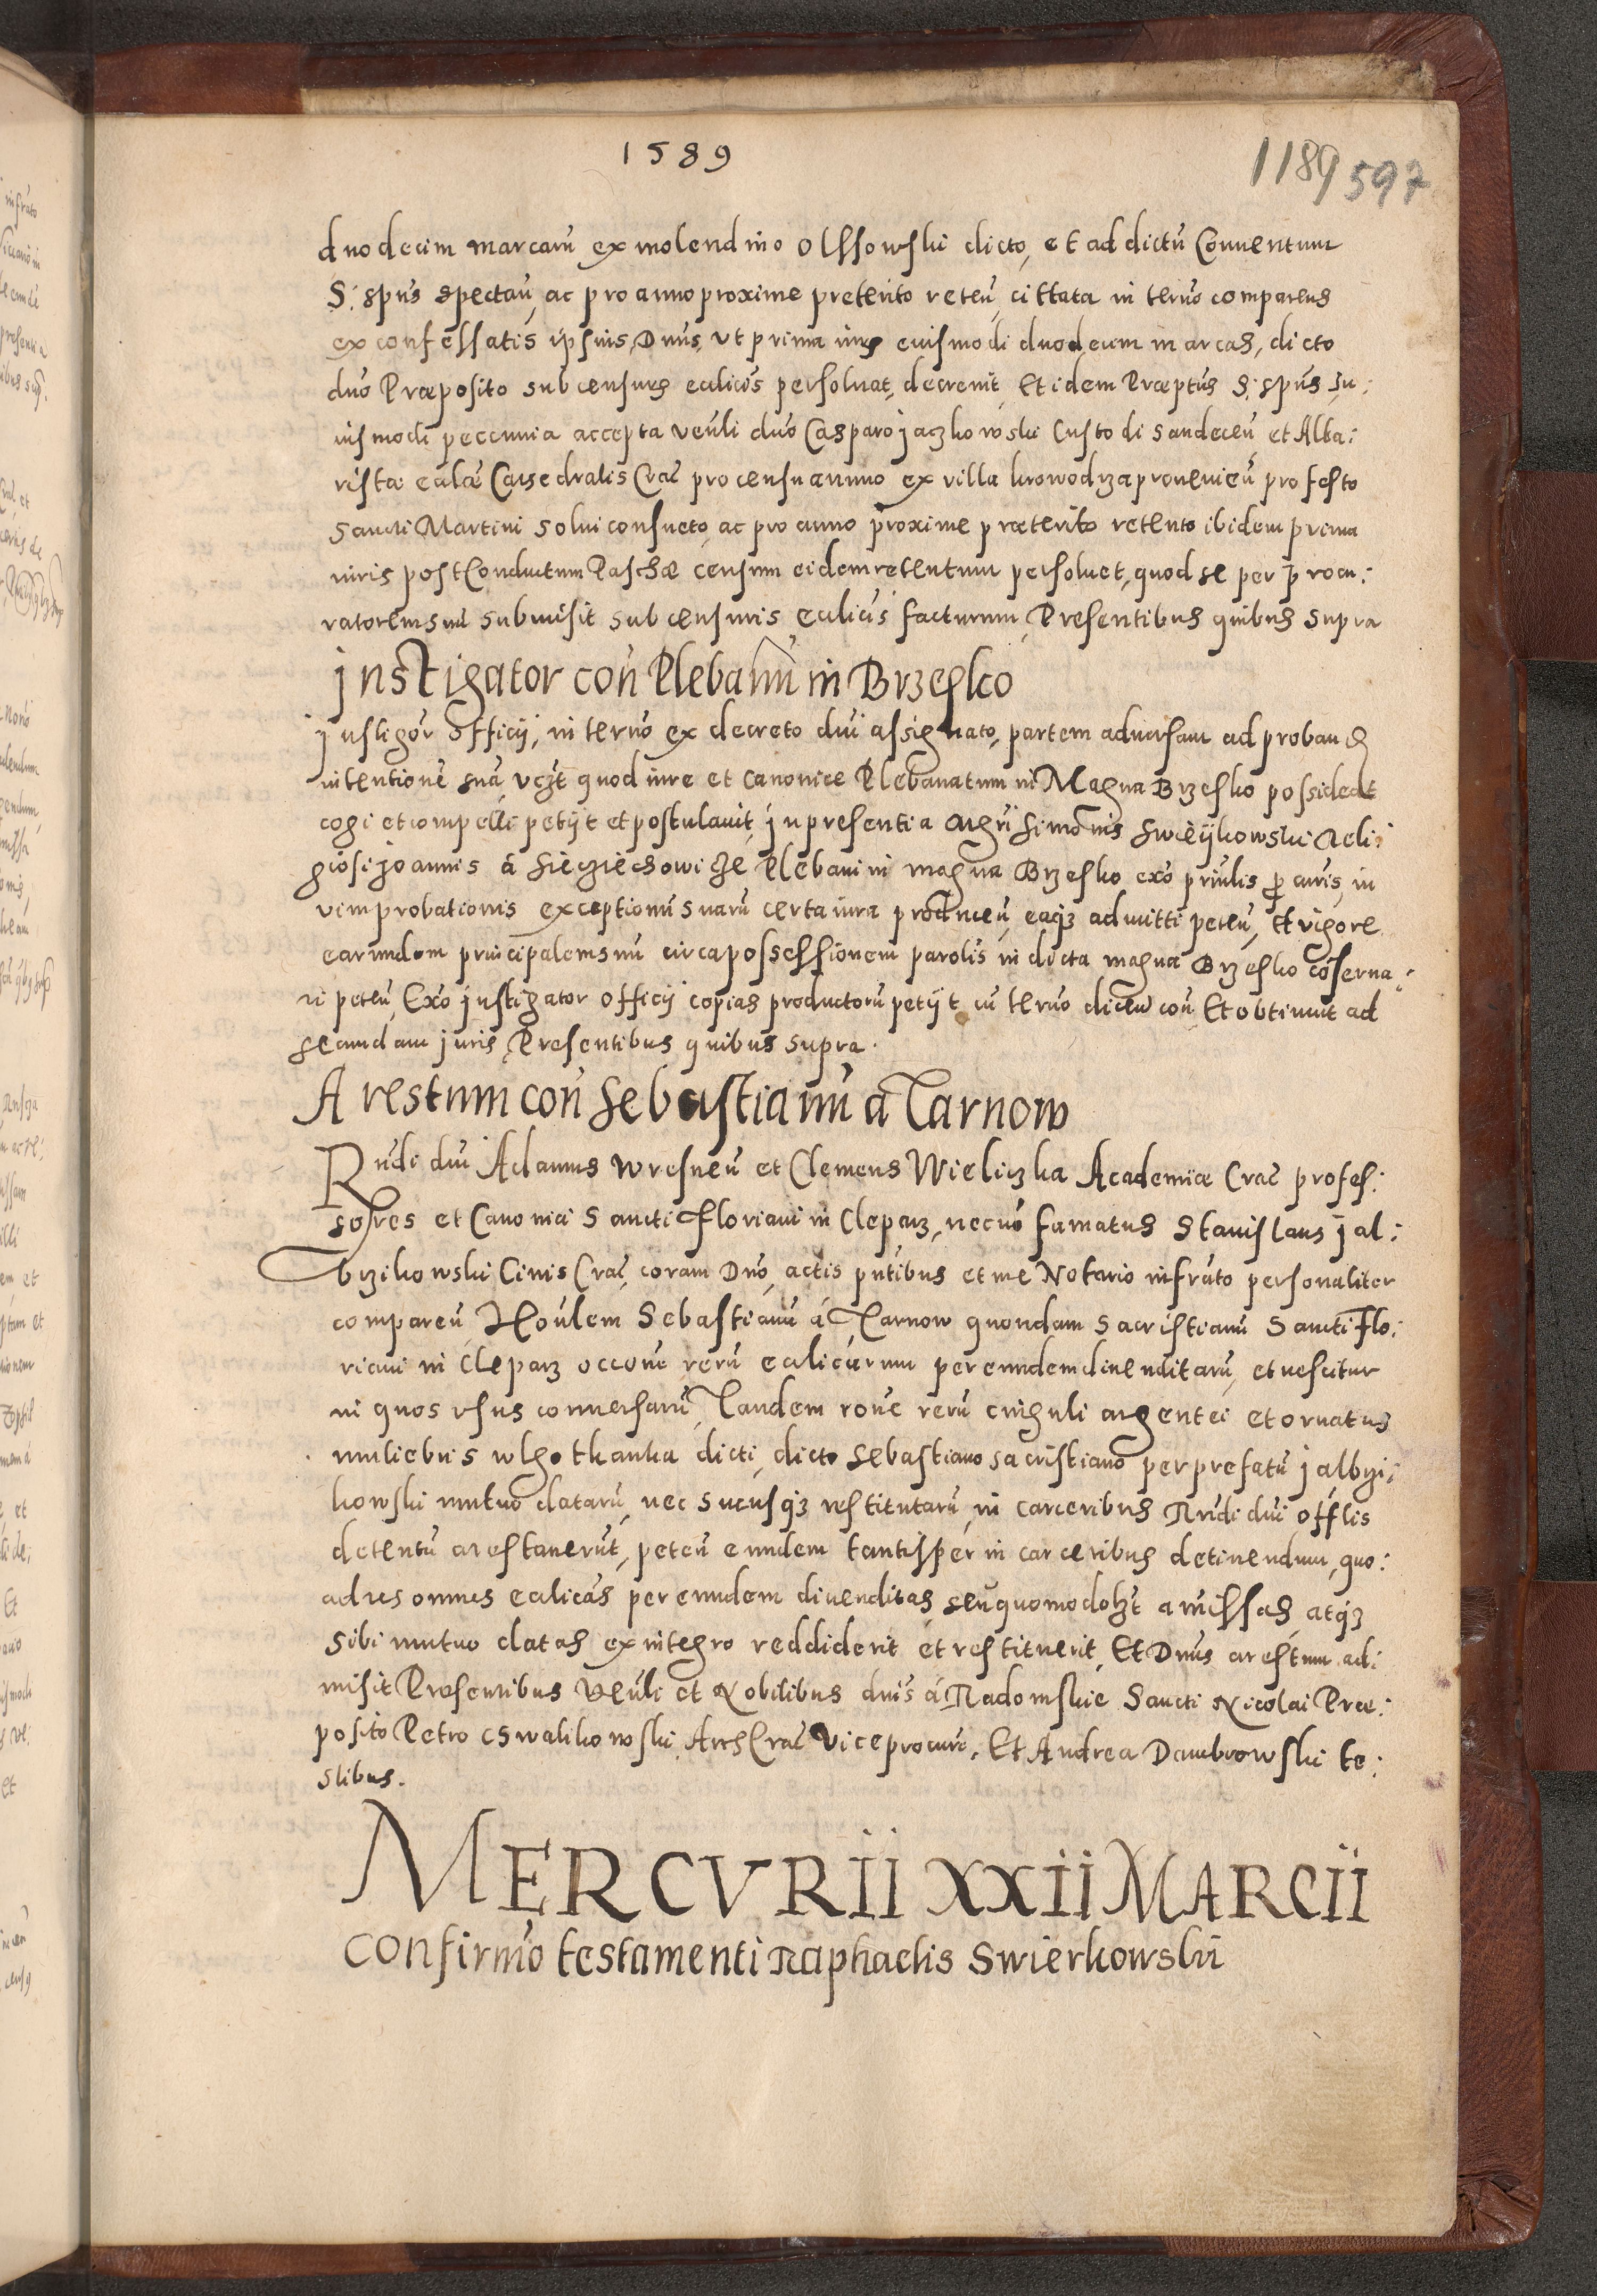 1589
1189 597
duodecim marcarũ ex molendino Olssowski dicto, et ad dictũ Conuentum
S: spũs spectañ, ac pro anno proxime preterito reteñ, cittata in termõ comparens
ex confessatis ipsius, Dnũs, vt prima iuris euismodi duodecim marcas, dicto
dnõ Præposito sub censuris eccliĉis persoluat, decreuit, Et idem Præptũs S: spũs hu:
iusmodi pecunia accepta Veñli dnõ Casparo Jaczkowski Custodi Sandeceñ et Alta:
ristæ eccłæ Catedralis Craĉ pro censu annuo ex villa krowodrza proueuieñ pro festo
Sancti Martini solui consueto, ac pro anno proxime præterito retento ibidem prima
iuris post Conductum Paschæ censum eidem retentum persoluet, quod se per procu:
ratorem suũ submisit sub censuris eccliĉis facturum, Presentibus quibus supra
Instigator coñ Plebanũ in Brzesko
Instigõr Officij, in termõ ex decreto dnĩ assignato, partem aduersam ad proband
intentionẽ suã, vcȝt quod iure et canonice Plebanatum in Magna Brzesko possideat
cogi et compelli petijt et postulauit, In presentia Magrĩ Simonis Swieijkowski Reli:
giosi Joannis á Sieciechowicze Plebani in magna Brzesko exõ priñlis p curis, in
vim probationis exceptionũ suarũ certa iura produceñ, eaqȝ admitti peteñ, Et vigore
earumdem principalem suũ circa possessionem parolis in dicta magna Brzesko cõserua:
ri peteñ, Exõ Instigator Officij copias productorũ petijt cũ termõ diceñ coñ Et obtinuit ad
secundam juris, Presentibus quibus supra.
Arestum coñ Sebastianũ a Tarnow
Rñdi dnĩ Adamus Wresneñ et Clemens Wieliczka Academiæ Craĉ profes:
sores et Canonici Sancti Floriani in Cleparz, necnõ famatus Stanislaus Jal:
brzikowski Ciuis Craĉ, coram Dnõ, actis pñtibus et me Notario infrãto personaliter
compareñ Hoñlem Sebastianũ á Tarnow quondam sacristianũ Sancti Flo:
riani in Cleparz occõne rerũ eccliĉarum per eundem diuenditarũ, et nescitur
in quos vsus conuersarũ, Tandem rõne rerũ cinguli argentei et ornatus
muliebris wlgo tkanka dicti, dicto Sebastiano sacristiano per prefatũ Jalbrzi:
kowski mutuo datarũ, nec sucusqȝ restitutarũ, in carceribus Rñdi dnĩ Offlis
detentũ arestauerũt, peteñ eundem tantisper in carceribus detinendum, quo:
ad res omnes eccliĉas per eundem diuenditas seu quomodolȝt amissas, atqȝ
sibi mutuo datas ex integro reddiderit et restituerit, Et Dnũs arestum ad:
misit Presentibus Veñli et Nobilibus dnĩs á Radomskie Sancti Nicolai Præ:
posito Petro Chwalikowski Arch Craĉ Viceprocurĩ, Et Andrea Dambrowski te:
stibus.
MERCVRII XXII MARCII
Confirmõ testamenti Raphaelis Swierkowski